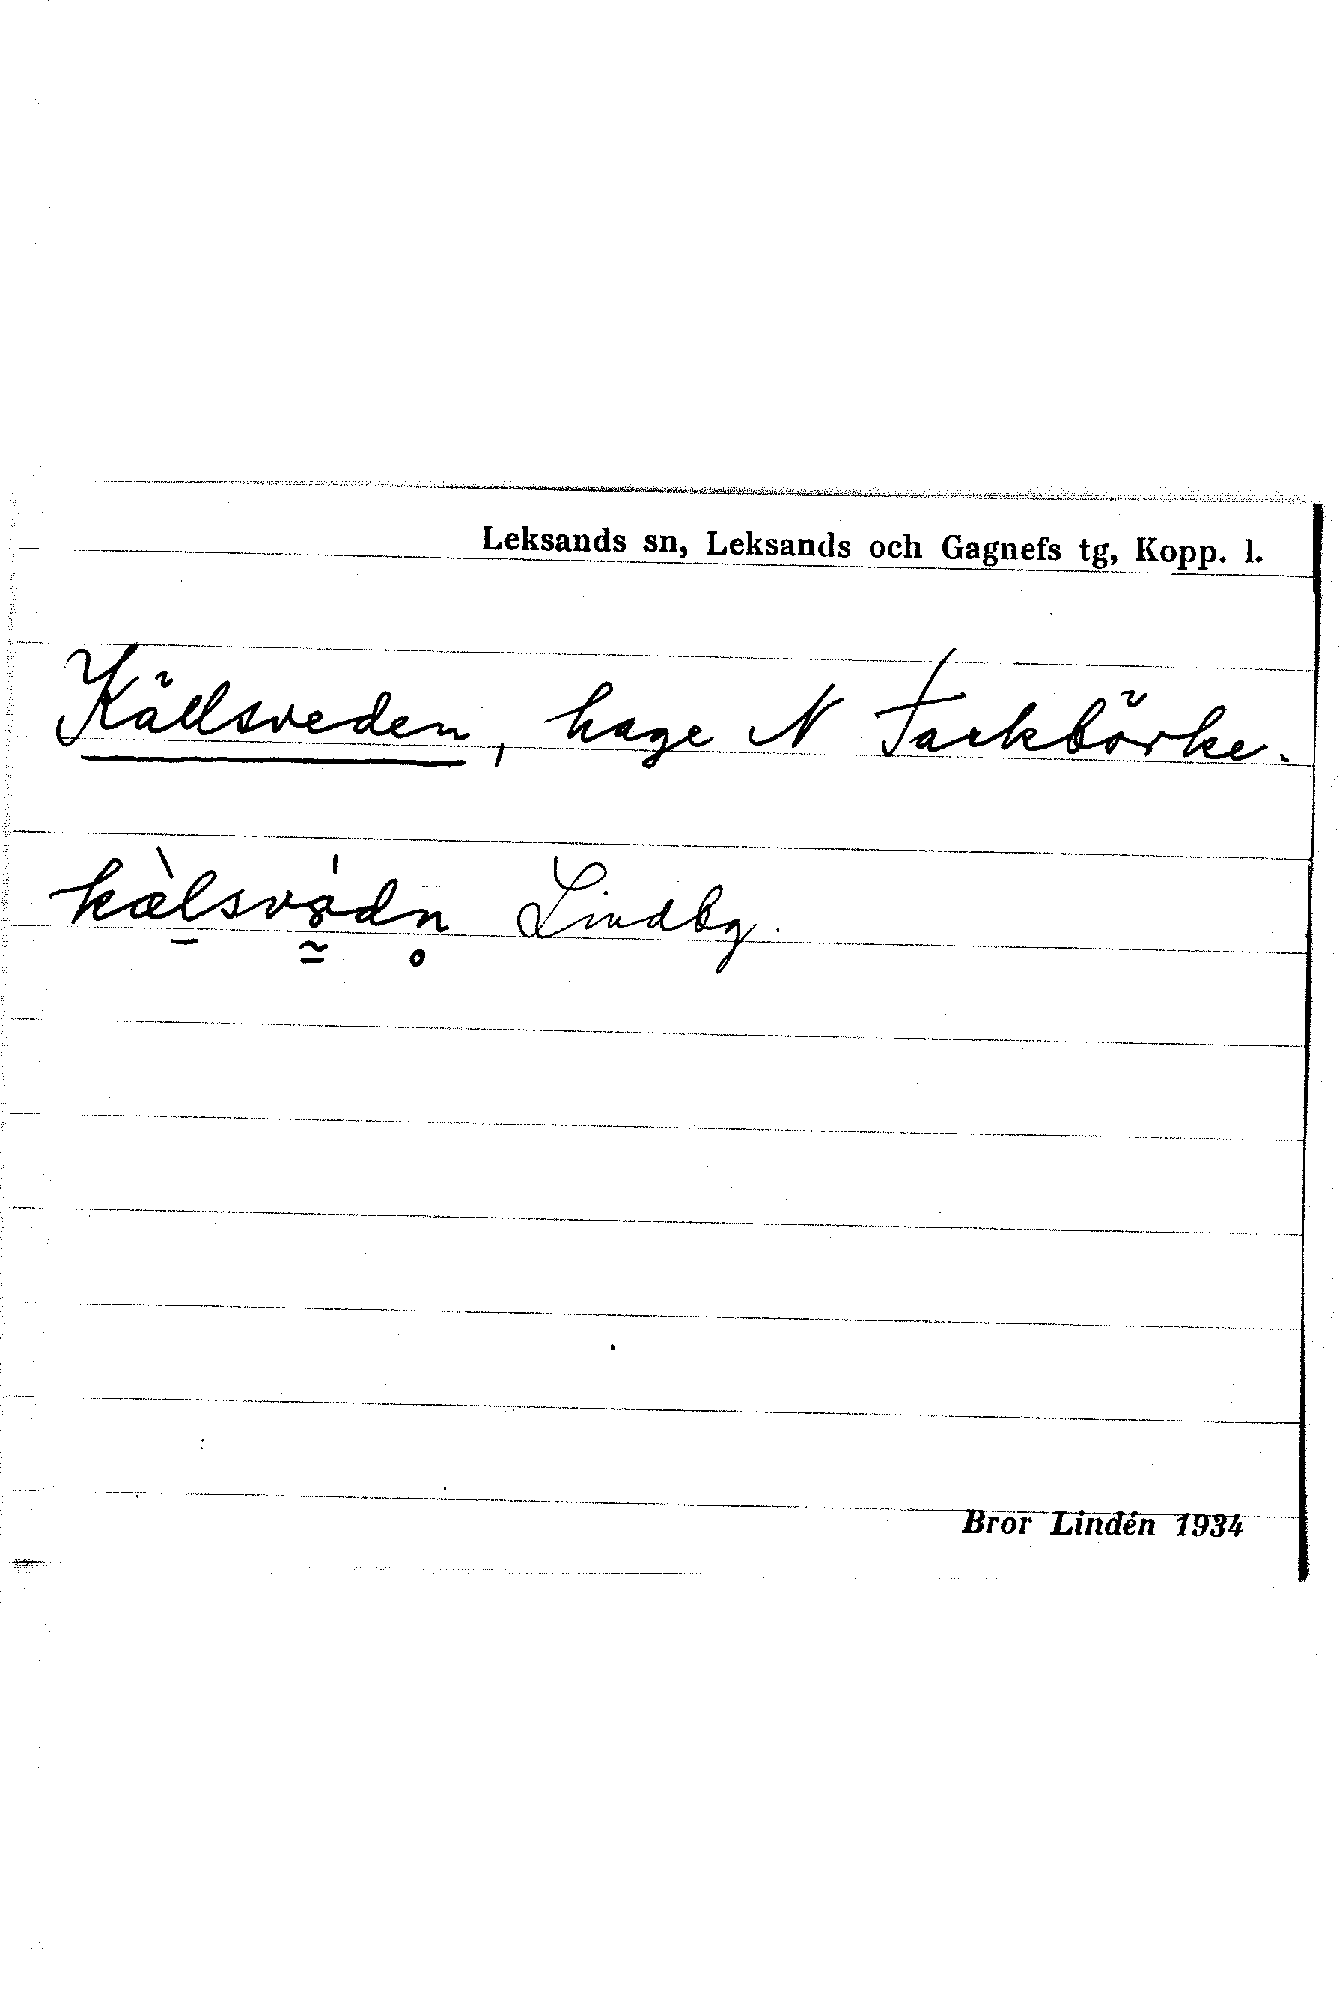 Leksands sn, Leksands och Gagnefs tg, Kopp. l.
Källsveden, hage N Fackbörke.
Lindbg.
Bror Lindén 1934